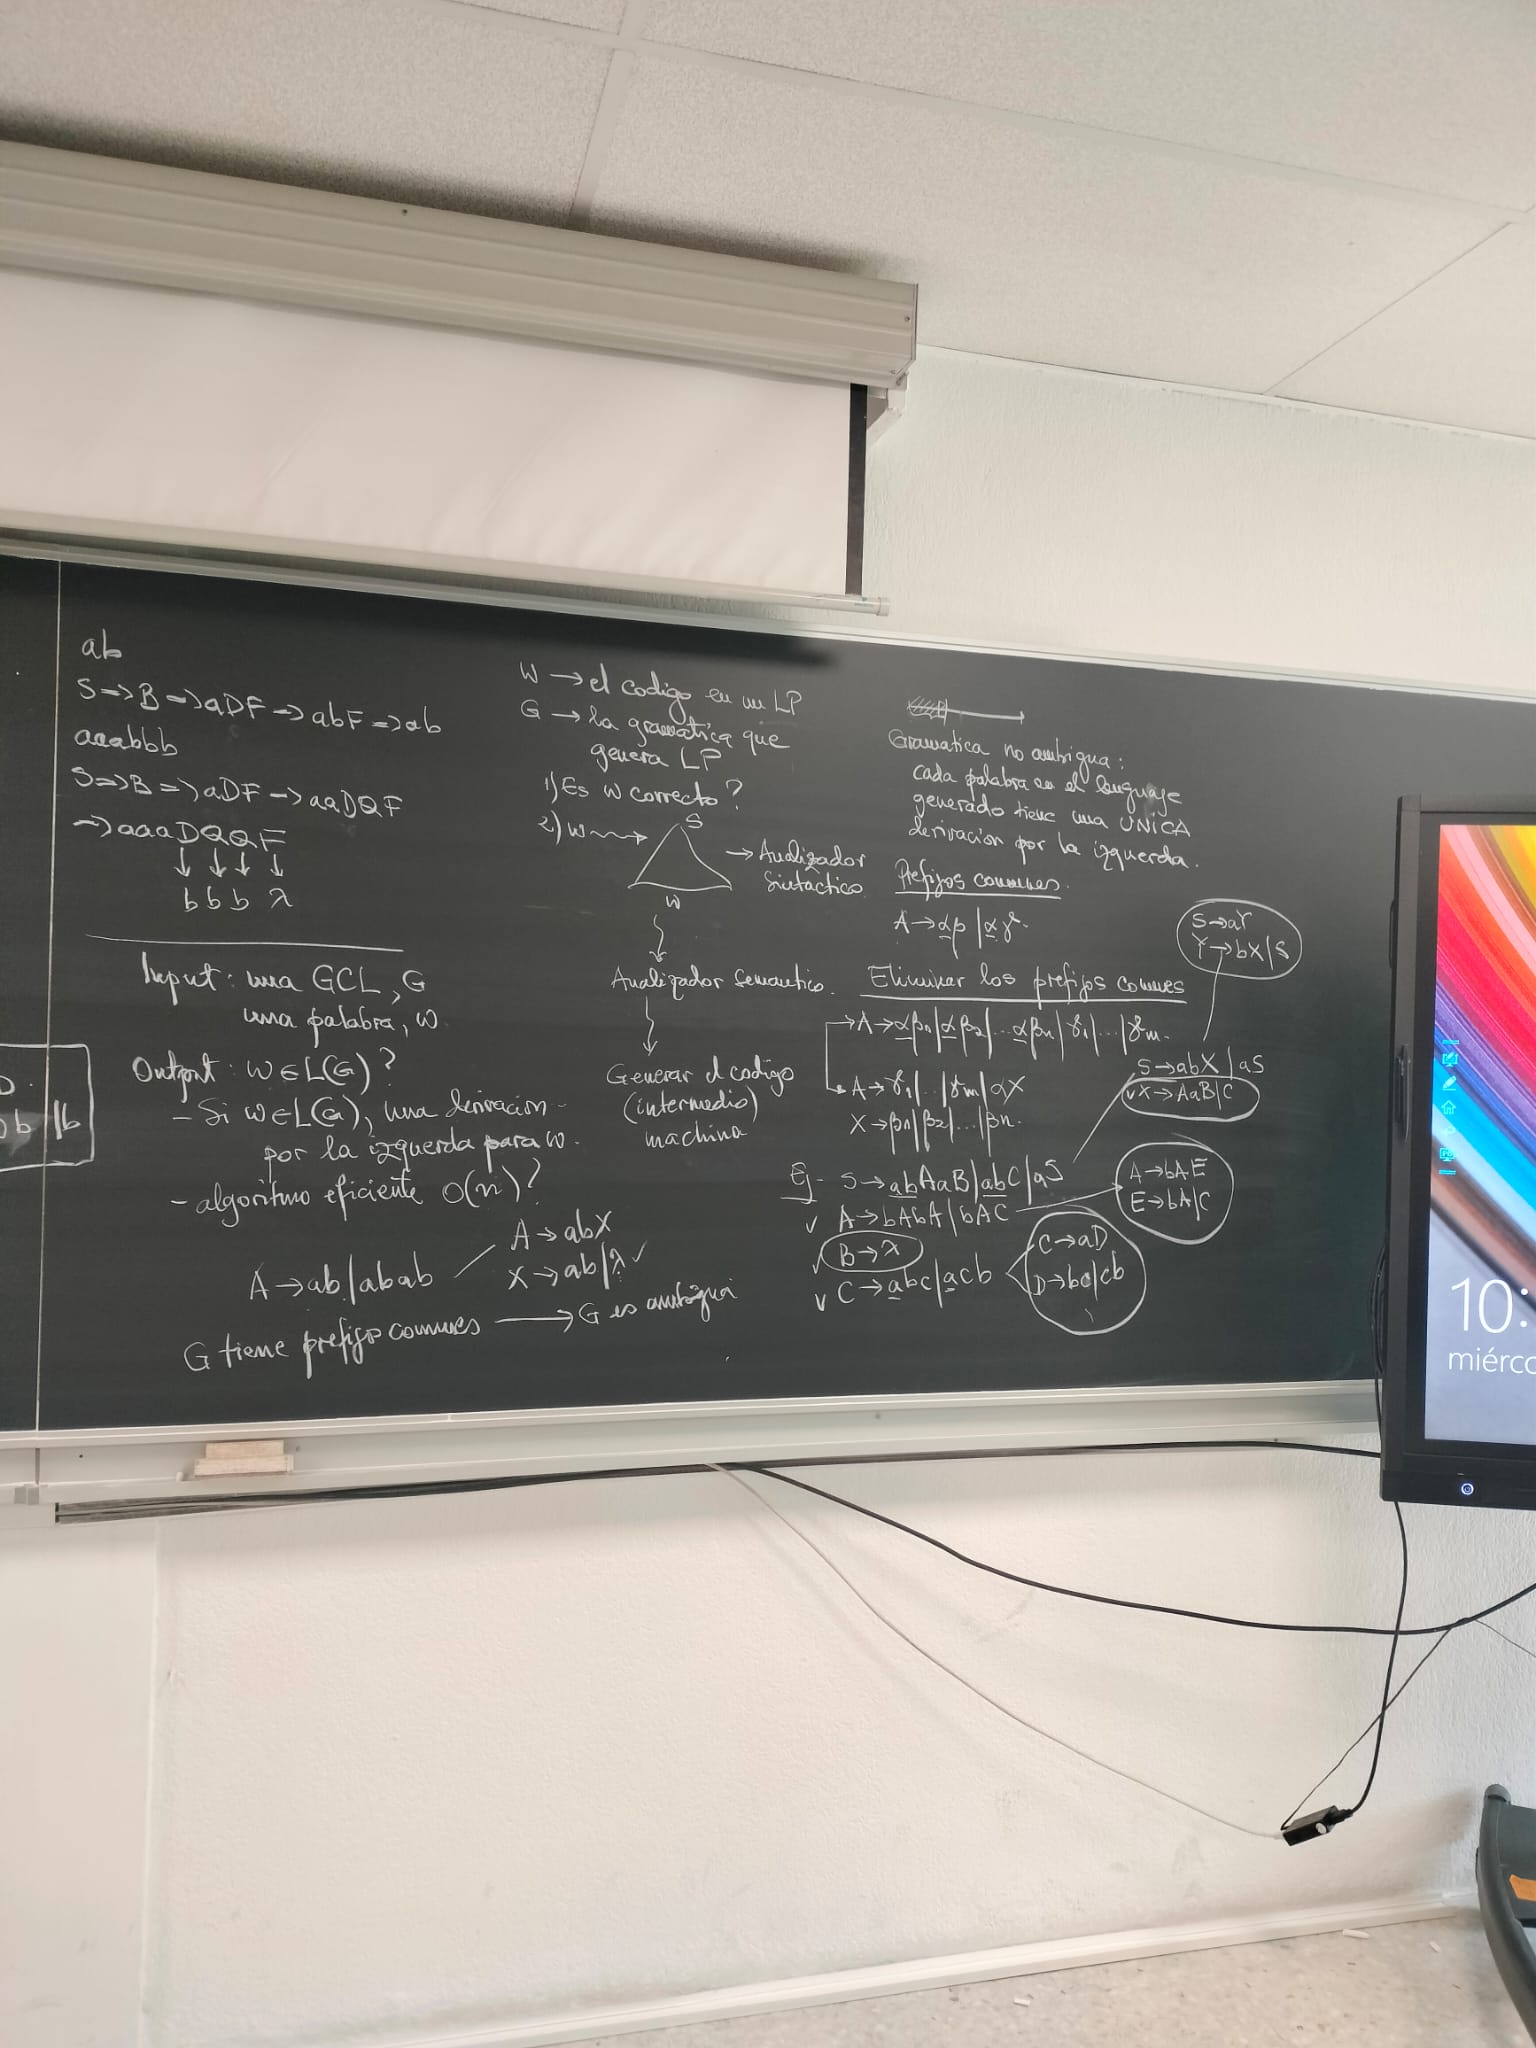 ab
S => B => aDF => abF => ab
aaabbb
S => B => aDF => aaDQF
=> aaaDQQF
↓ ↓ ↓ ↓
b b b λ
Input: una GCL, G
una palabra, w.
Output: w ∈ L(G)?
- Si w ∈ L(G), una derivacion
por la izquerda para w.
- algoritmo eficiente O(n)?
A → ab | abab
A → abX
X → ab | λ ✓
G tiene prefijos comunes → G es ambigua
b | b
W → el codigo en un LP
G → la gramatica que
genera LP
1) Es w correcto?
2) w
S
w
→ Analizador
Sintáctico
Analizador semantico.
Generar el codigo
(intermedio)
machina
Gramatica no ambigua:
cada palabra en el lenguaje
generado tiene una UNICA
derivacion por la izquerda.
Prefijos comunes.
A → αβ | αγ.
Eliminar los prefijos comunes
A → αβ1 | αβ2 | ... αβn | γ1 | ... | γm.
A → γ1 | ... | γm | αX
X → β1 | β2 | ... | βn.
Ej- S → abAaB | abC | aS
✓ A → bAbA | bAC
✓ B → λ
✓ C → abc | acb
S → aY
Y → bX | S
S → abX | aS
✓ X → AaB | C
A → bAE
E → bA | C
C → aD
D → bc | cb
10:
miérco